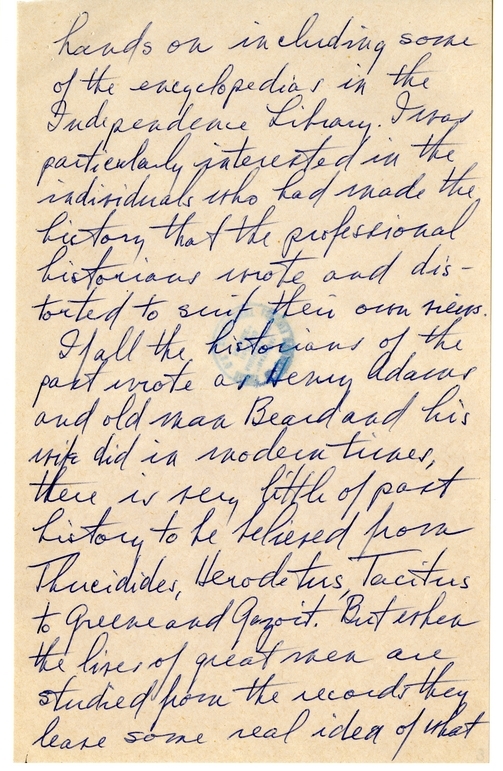 hands on including some
of the encyclopedias in the
Independence Library. I was
particularly interested in the
individuals who had made the
history that the professional
historians wrote and dis-
torted to suit their own views.
If all the historians of the
past wrote as Henry Adams
and old man Beard and his
wife did in modern times,
there is very little of past
history to be believed from
Thucidides, Herodetus, Tacitus
to Greene and Guzoit. But when
the lives of great men are
studied from the records they
leave some real idea of what